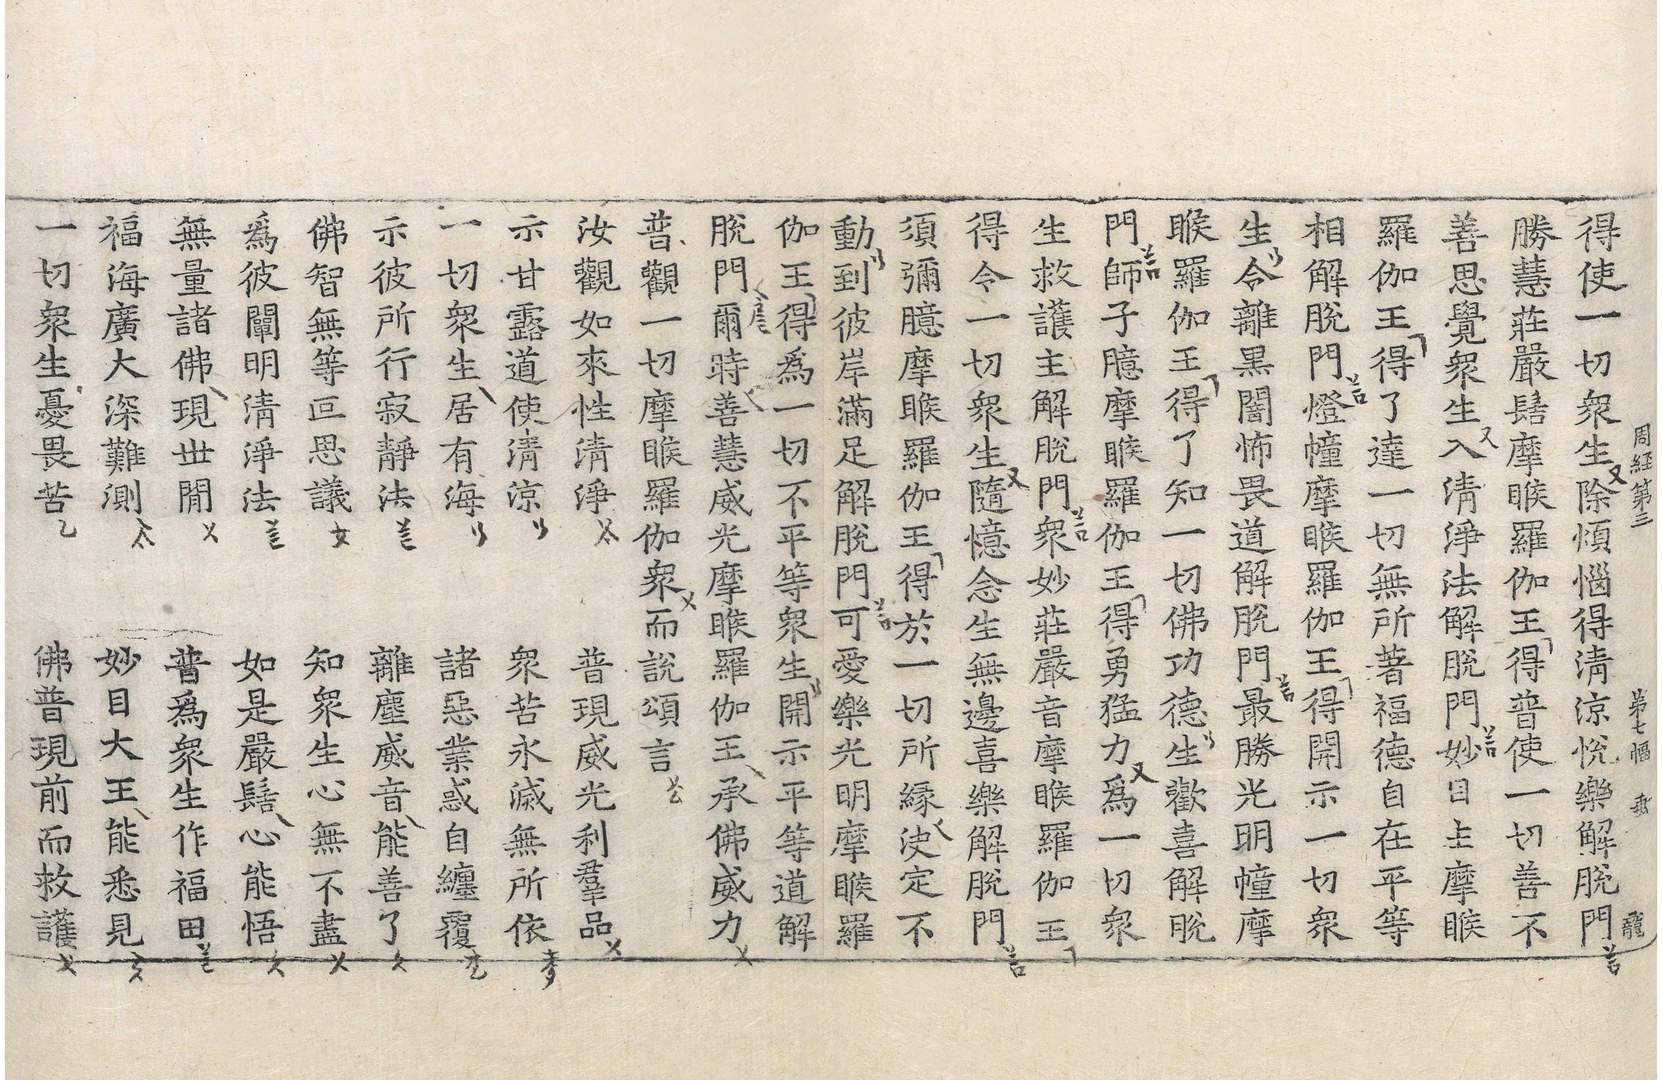 周経第三　第七幅
得使一切衆生除煩惱得清涼悅樂解脫門
勝慧莊嚴髻摩睺羅伽王得普使一切善不
善思覺衆生入清淨法解脫門妙目主摩睺
羅伽王得了達一切無所著福德自在平等
相解脫門燈幢摩睺羅伽王得開示一切衆
生令離黑闇怖畏道解脫門最勝光明幢摩
睺羅伽王得了知一切佛功德生歡喜解脫
門師子臆摩睺羅伽王得勇猛力爲一切衆
生救護主解脫門衆妙莊嚴音摩睺羅伽王
得令一切衆生隨憶念生無邊喜樂解脫門
須彌臆摩睺羅伽王得於一切所緣決定不
動到彼岸滿足解脫門可愛樂光明摩睺羅
伽王得爲一切不平等衆生開示平等道解
脫門爾時善慧威光摩睺羅伽王承佛威力
普觀一切摩睺羅伽衆而說頌言
汝觀如來性清淨　普現威光利羣品
示甘露道使清涼　衆苦永滅無所依
一切衆生居有海　諸惡業惑自纏覆
示彼所行寂靜法　離塵威音能善了
佛智無等叵思議　知衆生心無不盡
爲彼闡明清淨法　如是嚴髻心能悟
無量諸佛現世閒　普爲衆生作福田
福海廣大深難測　妙目大王能悉見
一切衆生憂畏苦　佛普現前而救護